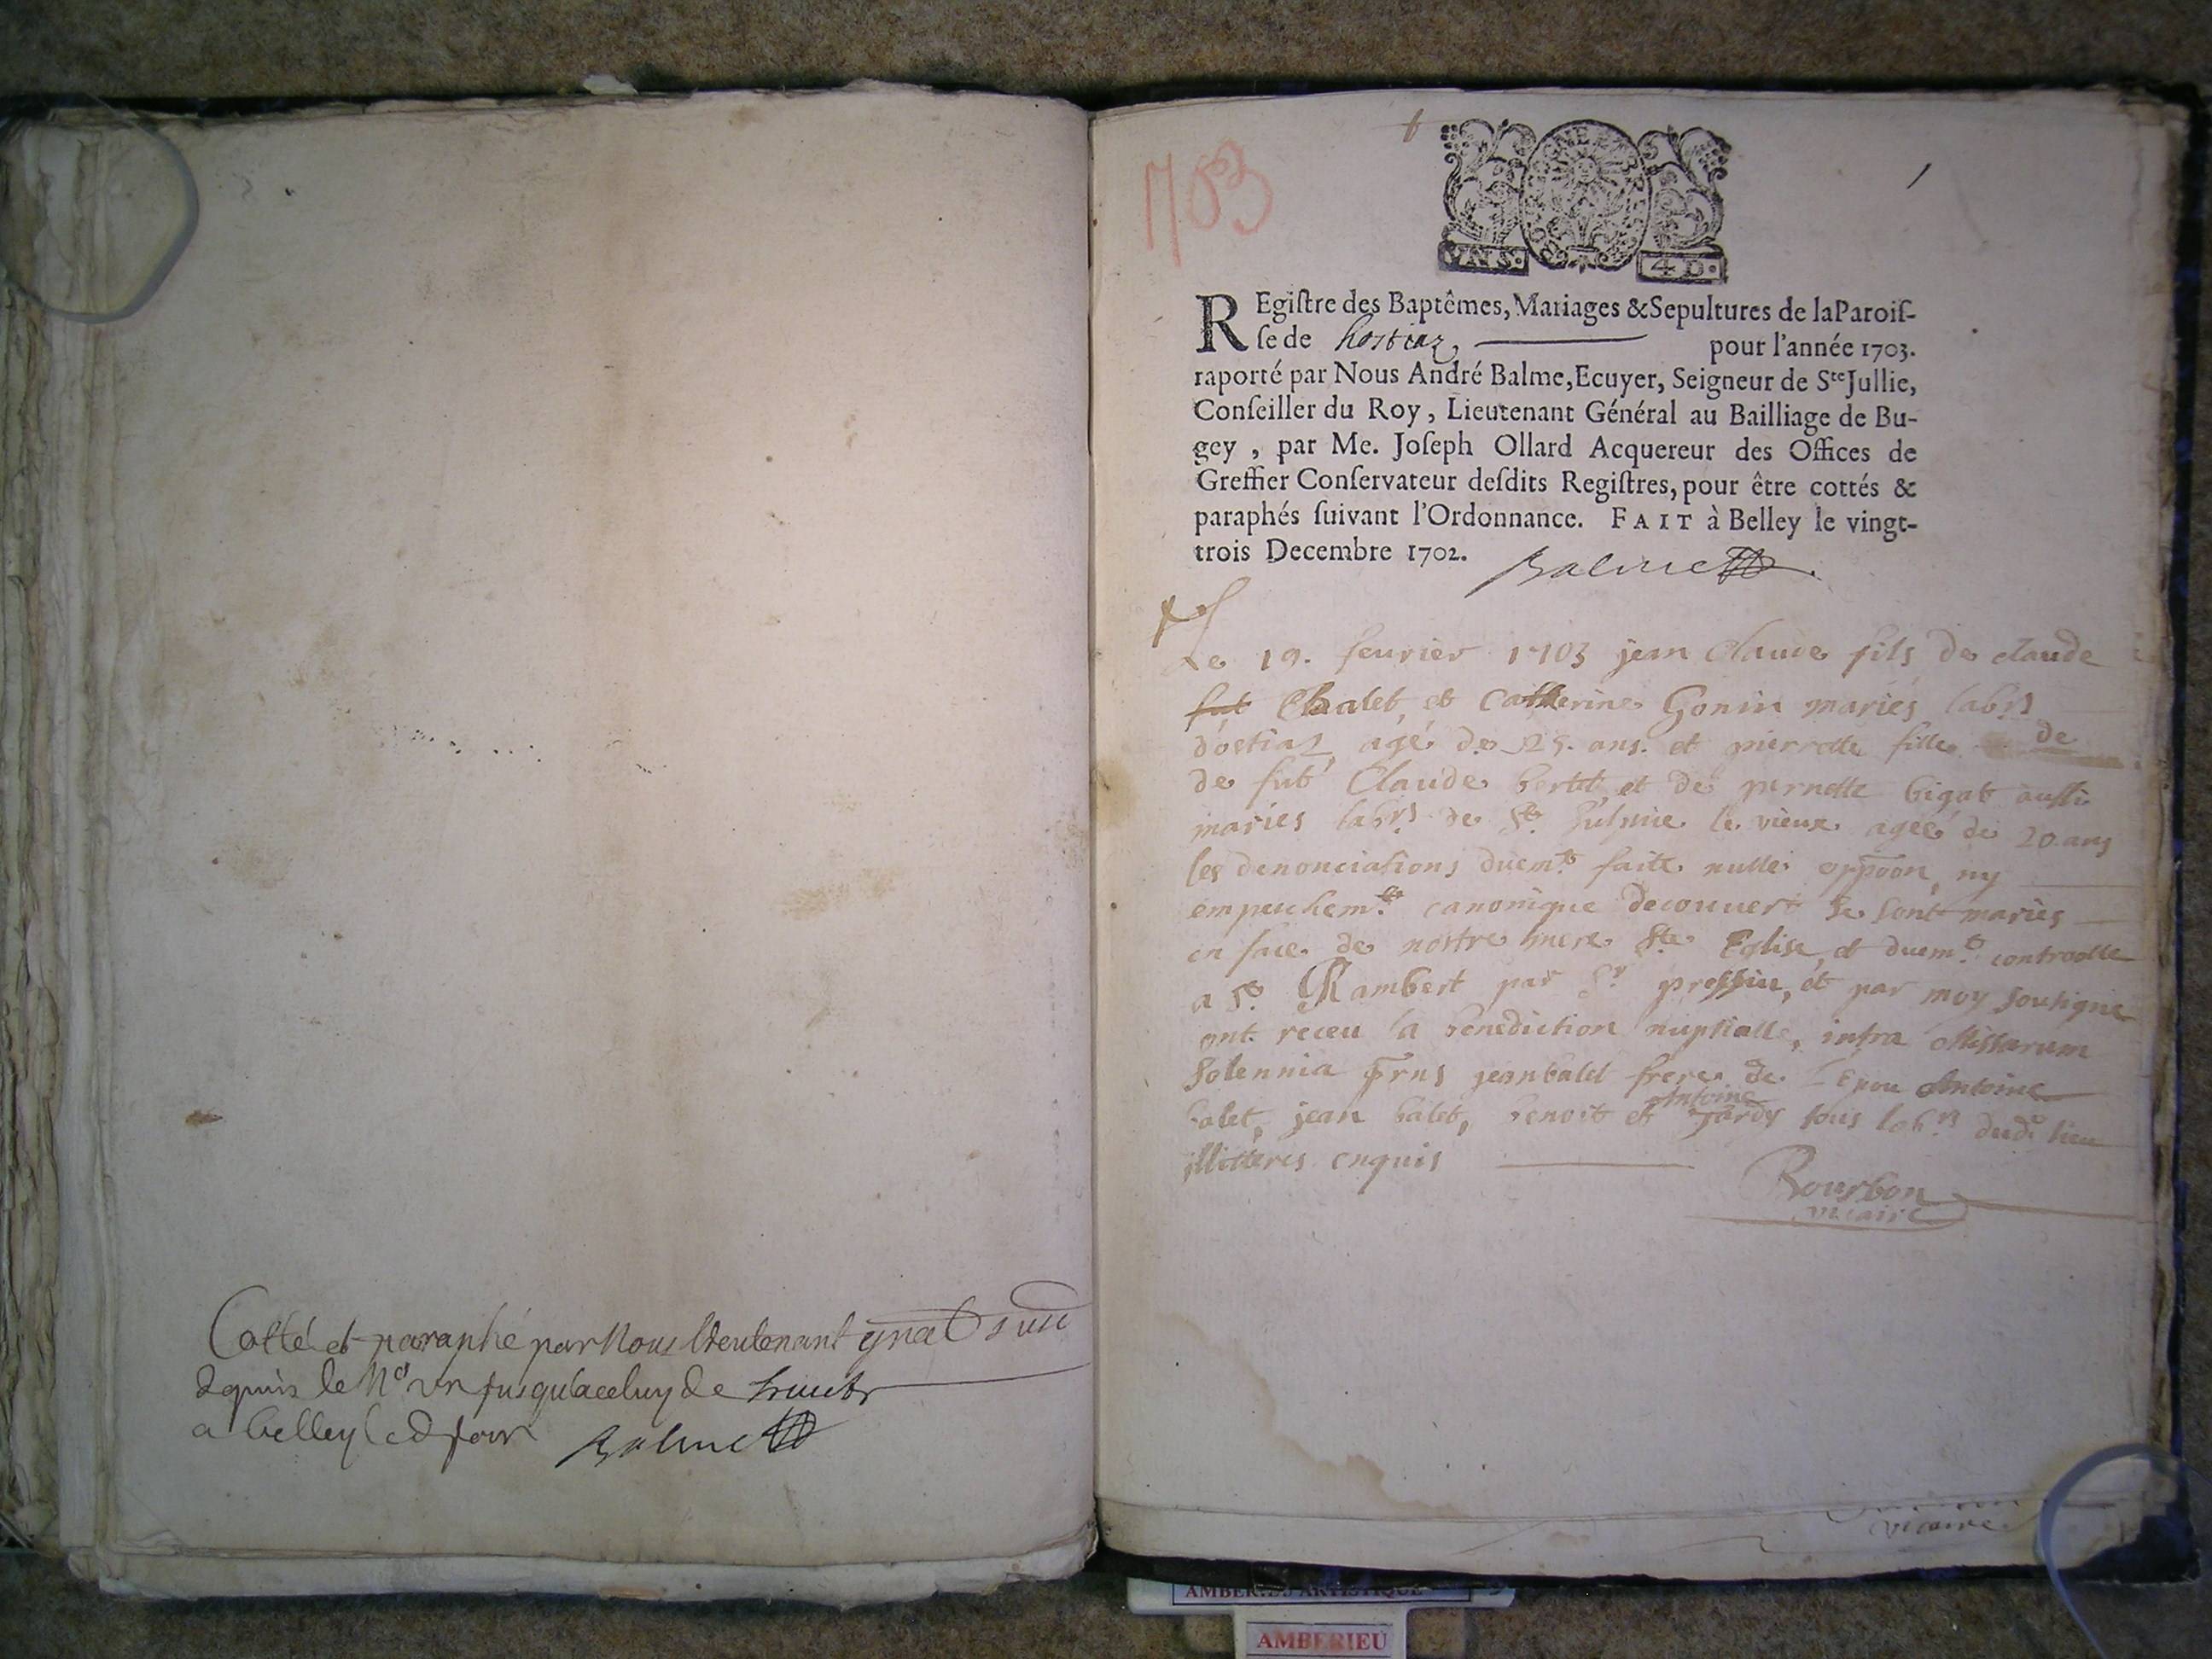 Cotté et paraphé par Nous Lieutenant gnal
depuis le N° un jusqu'a celuy de
a belley led jour Balme
1703
1
4 D.
REgiſtre des Baptêmes, Mariages & Sepultures de la Paroiſ-
ſe de hostiaz pour l'année 1703.
raporté par Nous André Balme, Ecuyer, Seigneur de Ste Jullie,
Conſeiller du Roy, Lieutenant Général au Bailliage de Bu-
gey, par Me. Joſeph Ollard Acquereur des Offices de
Greffier Conſervateur deſdits Regiſtres, pour être cottés &
paraphés ſuivant l'Ordonnance. FAIT à Belley le vingt-
trois Decembre 1702. Balme
Le 19. feurier 1703 jean Claude fils de claude
fut Balet, et Catherine Gonin mariés labrs
d'ostiaz, agé de 25. ans. et pierrette fille de
de fut Claude bertet et de pernette bigat aussi
maries labrs de St le vieux ageé de 20 ans
les denonciations duemt faite nulle oppoon, ny
empeschemt canonique decouuert se sont mariés
en face de nostre mere Ste Eglise, et duemt controolle
a St Rambert par Sr pressiu, et par moy sousigne
ont receu la benediction nuptialle, intra Missarum
Solennia prns jean balet frere de l'Epou Antoine
balet, jean balet, benoit et Antoine Jardy tous labrs dudt lieu
illitteres enquis
Bourbon
vicaire
vicaire
AMBERIEU ARTISTIQUE
AMBERIEU